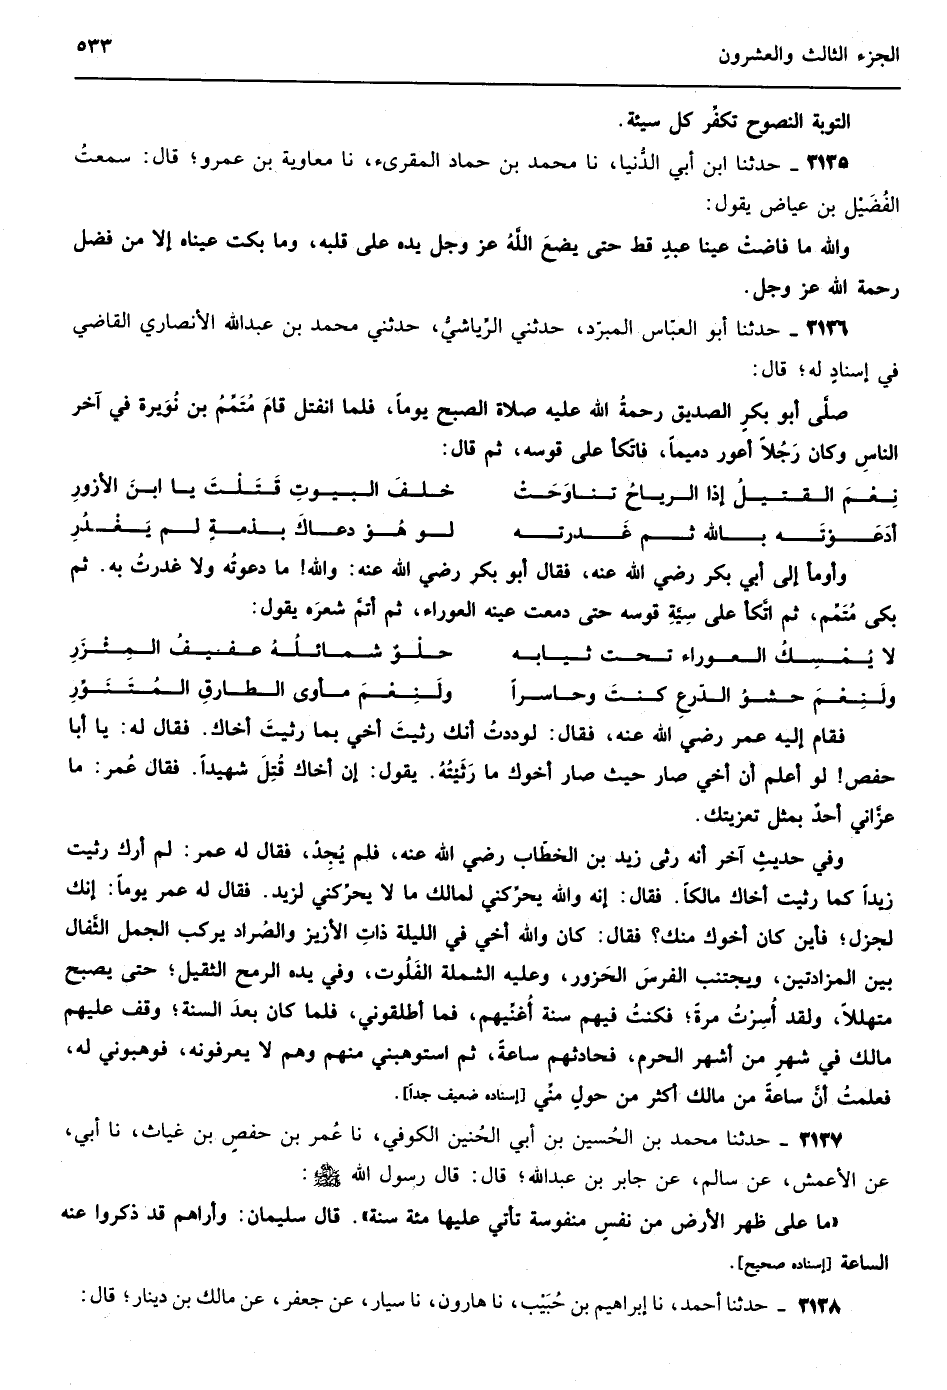 الجزء الثالث والعشرون
٥٣٣
التوبة النصوح تكفّر كل سيئة.
٣١٣٥ ـ حدثنا ابن أبي الدُّنيا، نا محمد بن حماد المقرىء، نا معاوية بن عمرو؛ قال: سمعتُ
الفُضَيْل بن عياض يقول:
والله ما فاضتْ عينا عبدٍ قط حتى يضعَ اللَّهُ عز وجل يده على قلبه، وما بكت عيناه إلا من فضل
رحمة الله عز وجل.
٣١٣٦ ـ حدثنا أبو العبّاس المبرّد، حدثني الرِّياشيُّ، حدثني محمد بن عبدالله الأنصاري القاضي
في إسنادٍ له؛ قال:
صلَّى أبو بكرٍ الصديق رحمةُ الله عليه صلاة الصبح يوماً، فلما انفتل قامَ مُتَمِّمُ بن نُوَيرة في آخر
الناسِ وكان رَجُلاً أعور دميماً، فاتّكأ على قوسه، ثم قال:
نِعْمَ القتيلُ إذا الرياحُ تناوَحَتْ خلفَ البيوتِ قَتَلْتَ يا ابنَ الأزورِ
أدَعَوْتَه بالله ثم غَدرته لو هُوَ دعاكَ بذمةٍ لم يَغْدُرِ
وأومأ إلى أبي بكر رضي الله عنه، فقال أبو بكر رضي الله عنه: والله! ما دعوتُه ولا غدرتُ به. ثم
بكى مُتَمِّم، ثم اتَّكأ على سِيَةِ قوسه حتى دمعت عينه العوراء، ثم أتمَّ شعرَه يقول:
لا يُمْسِكُ العوراء تحت ثيابه حلوٌ شمائلُهُ عفيفُ المِئْزَرِ
ولَنِعْمَ حشوُ الدّرعِ كنتَ وحاسراً ولَنِعْمَ مأوى الطارقِ المُتَنَوِّرِ
فقام إليه عمر رضي الله عنه، فقال: لوددتُ أنك رثيتَ أخي بما رثيتَ أخاك. فقال له: يا أبا
حفص! لو أعلم أن أخي صار حيث صار أخوك ما رَثَيْتُهُ. يقول: إن أخاك قُتِلَ شهيداً. فقال عُمر: ما
عزَّاني أحدٌ بمثل تعزيتك.
وفي حديثٍ آخر أنه رثى زيد بن الخطّاب رضي الله عنه، فلم يُجِدْ، فقال له عمر: لم أرك رثيت
زيداً كما رثيت أخاك مالكاً. فقال: إنه والله يحرّكني لمالك ما لا يحرّكني لزيد. فقال له عمر يوماً: إنك
لجزل؛ فأين كان أخوك منك؟ فقال: كان والله أخي في الليلة ذاتِ الأزيز والصُراد يركب الجمل الثَّفال
بين المزادتين، ويجتنب الفرسَ الحَزور، وعليه الشملة الفَلُوت، وفي يده الرمح الثقيل؛ حتى يصبح
متهللاً، ولقد أُسِرْتُ مرةً؛ فكنتُ فيهم سنة أُغنِّيهم، فما أطلقوني، فلما كان بعدَ السنة؛ وقف عليهم
مالك في شهرٍ من أشهر الحرم، فحادثهم ساعةً، ثم استوهبني منهم وهم لا يعرفونه، فوهبوني له،
فعلمتُ أنَّ ساعةً من مالك أكثر من حولٍ منّي [إسناده ضعيف جداً].
٣١٣٧ ـ حدثنا محمد بن الحُسين بن أبي الحُنين الكوفي، نا عُمر بن حفص بن غياث، نا أبي،
عن الأعمش، عن سالم، عن جابر بن عبدالله؛ قال: قال رسول الله ﷺ:
«ما على ظهر الأرض من نفسٍ منفوسة تأتي عليها مئة سنة». قال سليمان: وأراهم قد ذكروا عنه
الساعة [إسناده صحيح].
٣١٣٨ ـ حدثنا أحمد، نا إبراهيم بن حُبَيْب، نا هارون، نا سيار، عن جعفر، عن مالك بن دينار؛ قال: